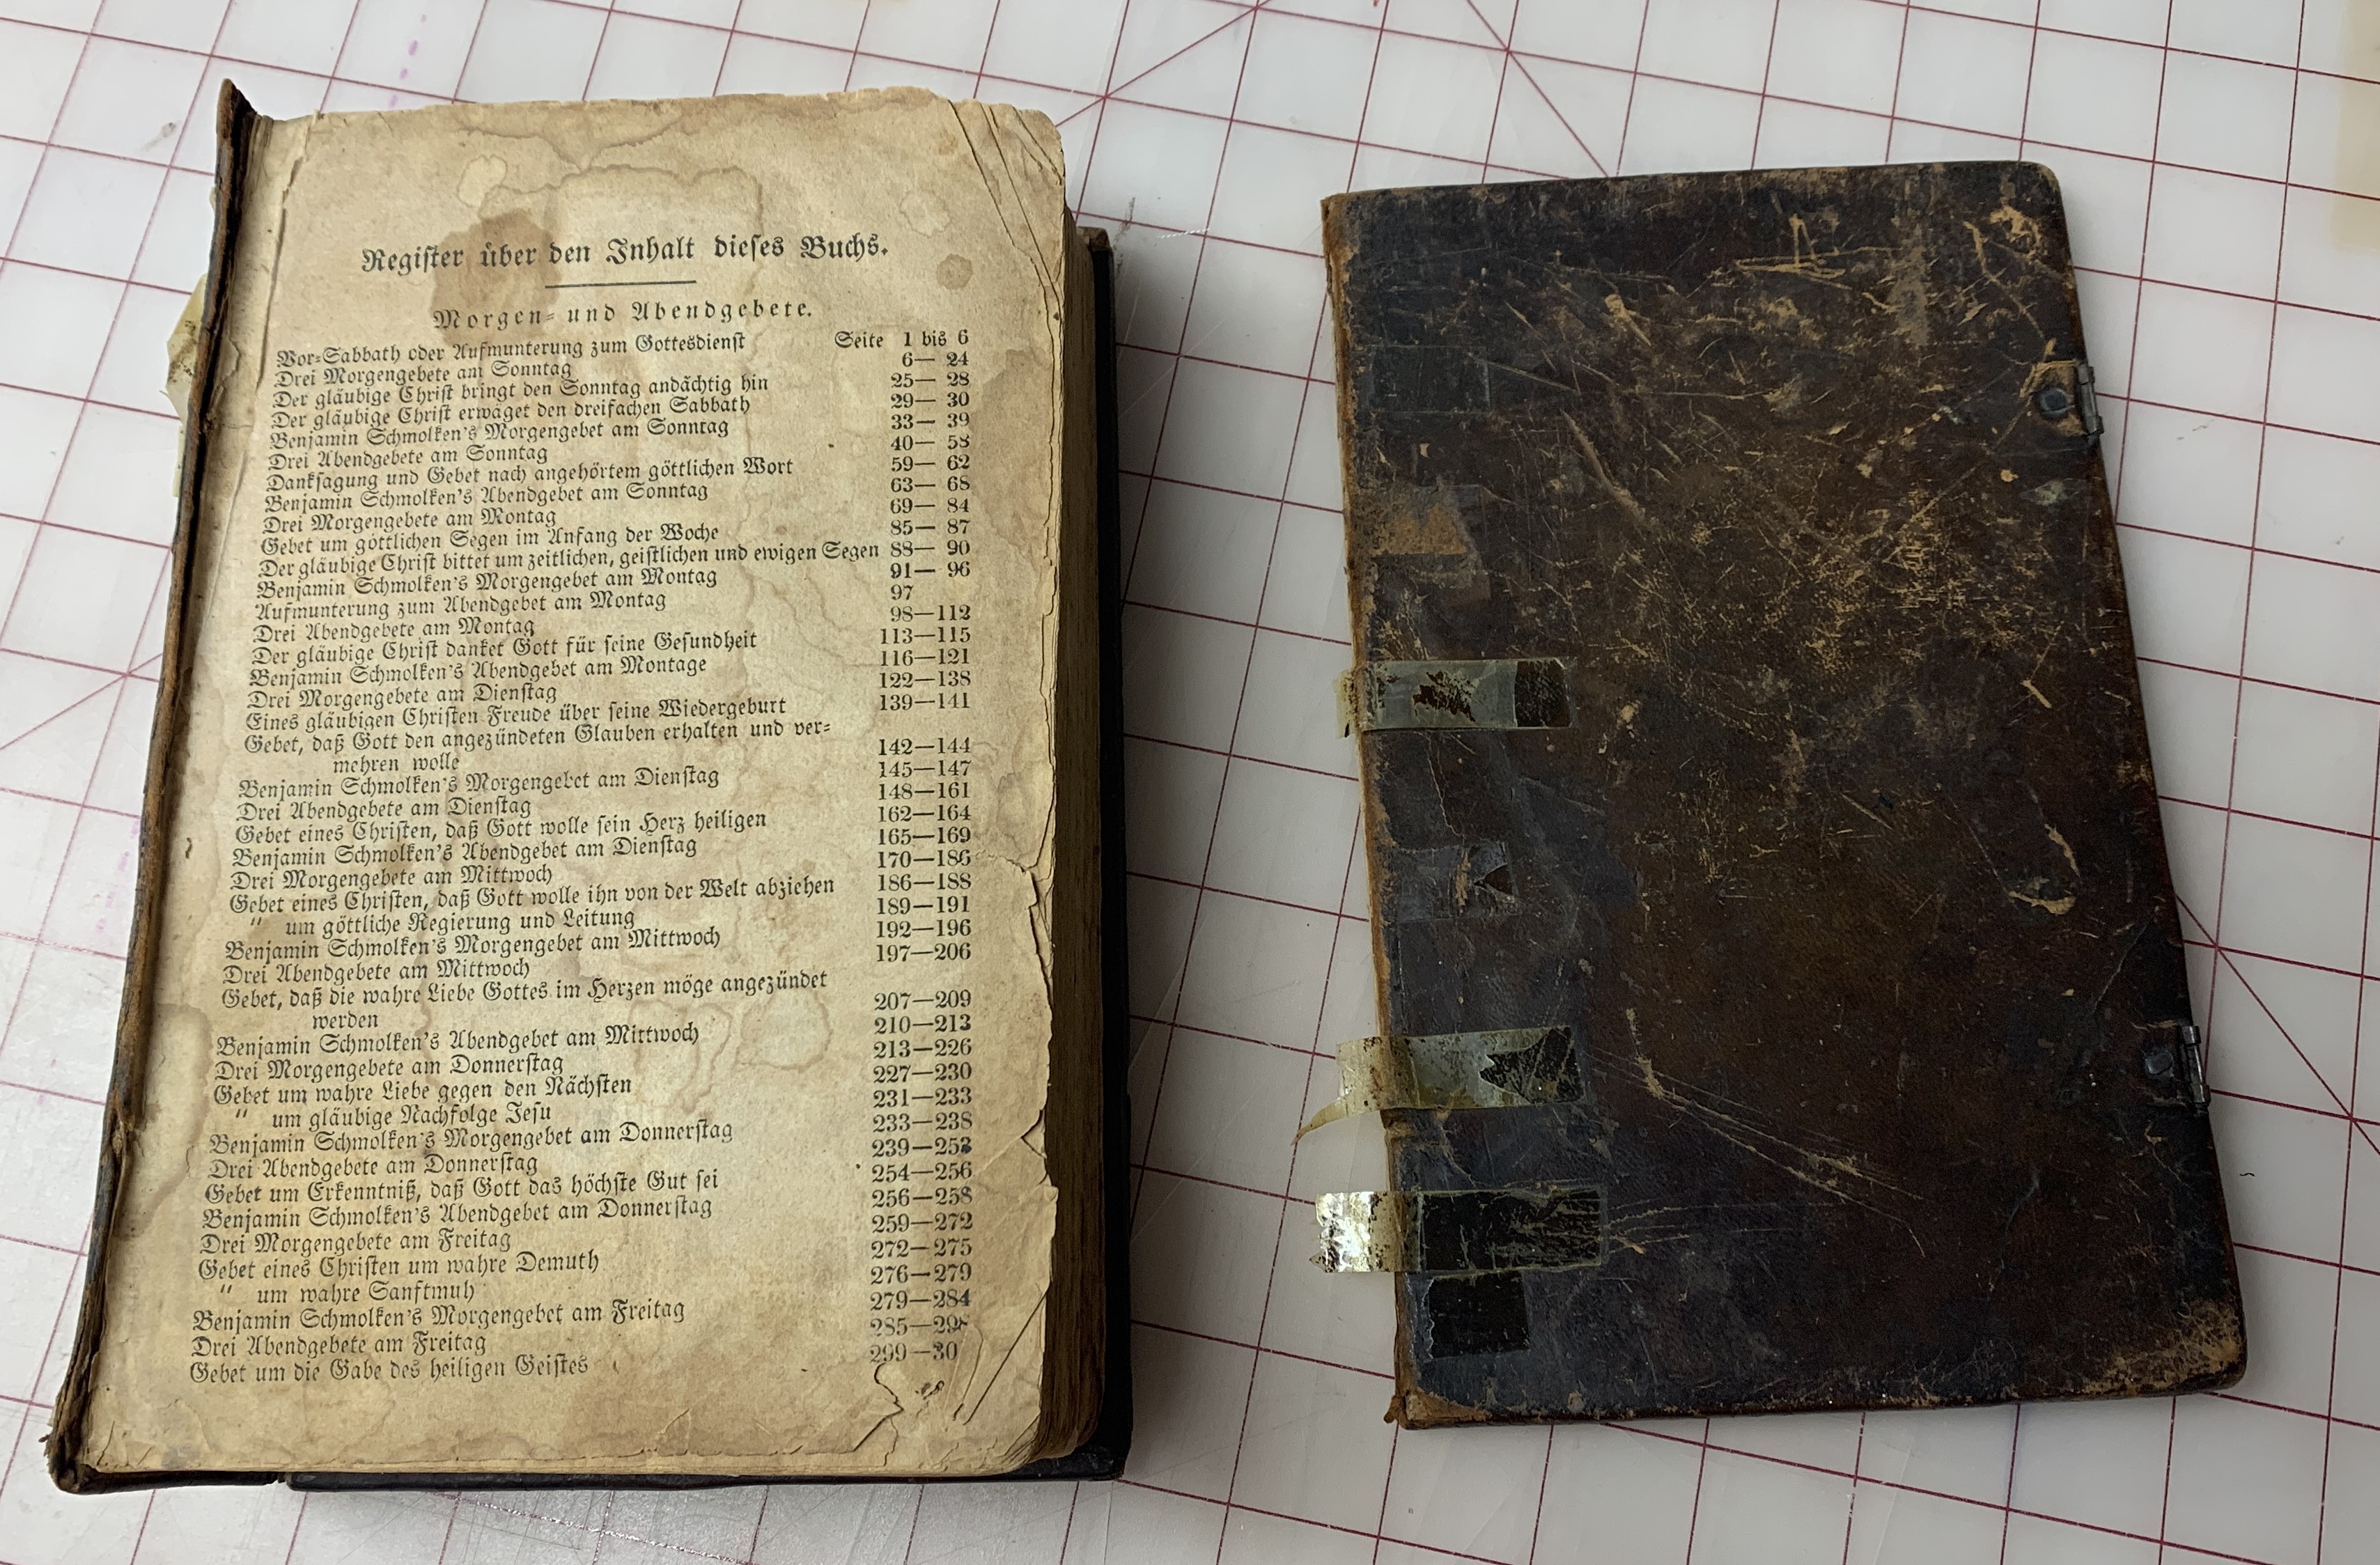 Register über den Inhalt dieses Buchs.
Morgen- und Abendgebete.
Vor-Sabbath oder Aufmunterung zum Gottesdienst Seite 1 bis 6
Drei Morgengebete am Sonntag 6— 24
Der gläubige Christ bringt den Sonntag andächtig hin 25— 28
Der gläubige Christ erwäget den dreifachen Sabbath 29— 30
Benjamin Schmolken's Morgengebet am Sonntag 33— 39
Drei Abendgebete am Sonntag 40— 58
Danksagung und Gebet nach angehörtem göttlichen Wort 59— 62
Benjamin Schmolken's Abendgebet am Sonntag 63— 68
Drei Morgengebete am Montag 69— 84
Gebet um göttlichen Segen im Anfang der Woche 85— 87
Der gläubige Christ bittet um zeitlichen, geistlichen und ewigen Segen 88— 90
Benjamin Schmolken's Morgengebet am Montag 91— 96
Aufmunterung zum Abendgebet am Montag 97
Drei Abendgebete am Montag 98—112
Der gläubige Christ danket Gott für seine Gesundheit 113—115
Benjamin Schmolken's Abendgebet am Montage 116—121
Drei Morgengebete am Dienstag 122—138
Eines gläubigen Christen Freude über seine Wiedergeburt 139—141
Gebet, daß Gott den angezündeten Glauben erhalten und ver-
mehren wolle 142—144
Benjamin Schmolken's Morgengebet am Dienstag 145—147
Drei Abendgebete am Dienstag 148—161
Gebet eines Christen, daß Gott wolle sein Herz heiligen 162—164
Benjamin Schmolken's Abendgebet am Dienstag 165—169
Drei Morgengebete am Mittwoch 170—186
Gebet eines Christen, daß Gott wolle ihn von der Welt abziehen 186—188
“ um göttliche Regierung und Leitung 189—191
Benjamin Schmolken's Morgengebet am Mittwoch 192—196
Drei Abendgebete am Mittwoch 197—206
Gebet, daß die wahre Liebe Gottes im Herzen möge angezündet
werden 207—209
Benjamin Schmolken's Abendgebet am Mittwoch 210—213
Drei Morgengebete am Donnerstag 213—226
Gebet um wahre Liebe gegen den Nächsten 227—230
“ um gläubige Nachfolge Jesu 231—233
Benjamin Schmolken's Morgengebet am Donnerstag 233—238
Drei Abendgebete am Donnerstag 239—253
Gebet um Erkenntniß, daß Gott das höchste Gut sei 254—256
Benjamin Schmolken's Abendgebet am Donnerstag 256—258
Drei Morgengebete am Freitag 259—272
Gebet eines Christen um wahre Demuth 272—275
“ um wahre Sanftmuh 276—279
Benjamin Schmolken's Morgengebet am Freitag 279—284
Drei Abendgebete am Freitag 285—298
Gebet um die Gabe des heiligen Geistes 299—30